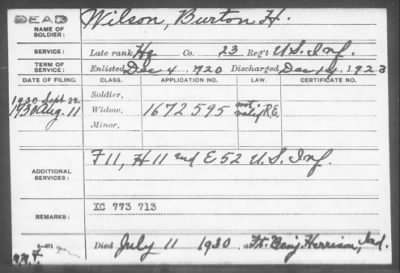 DEAD
NAME OF SOLDIER: Wilson, Burton H.
SERVICE: Late rank Hq Co. 23 Reg't U.S. Inf.
TERM OF SERVICE: Enlisted Dec 4, 1920 Discharged Dec 14, 1923
DATE OF FILING. CLASS. APPLICATION NO. LAW. CERTIFICATE NO.
1930 Sept 22 Soldier,
1930 Aug. 11 Widow, 1672595 R.E.
Minor,
ADDITIONAL SERVICES: F 11, H 11 and E 52 U.S. Inf.
REMARKS: XC 773 713
Died July 11 1930, at Ft. Benj Harrison, Ind.